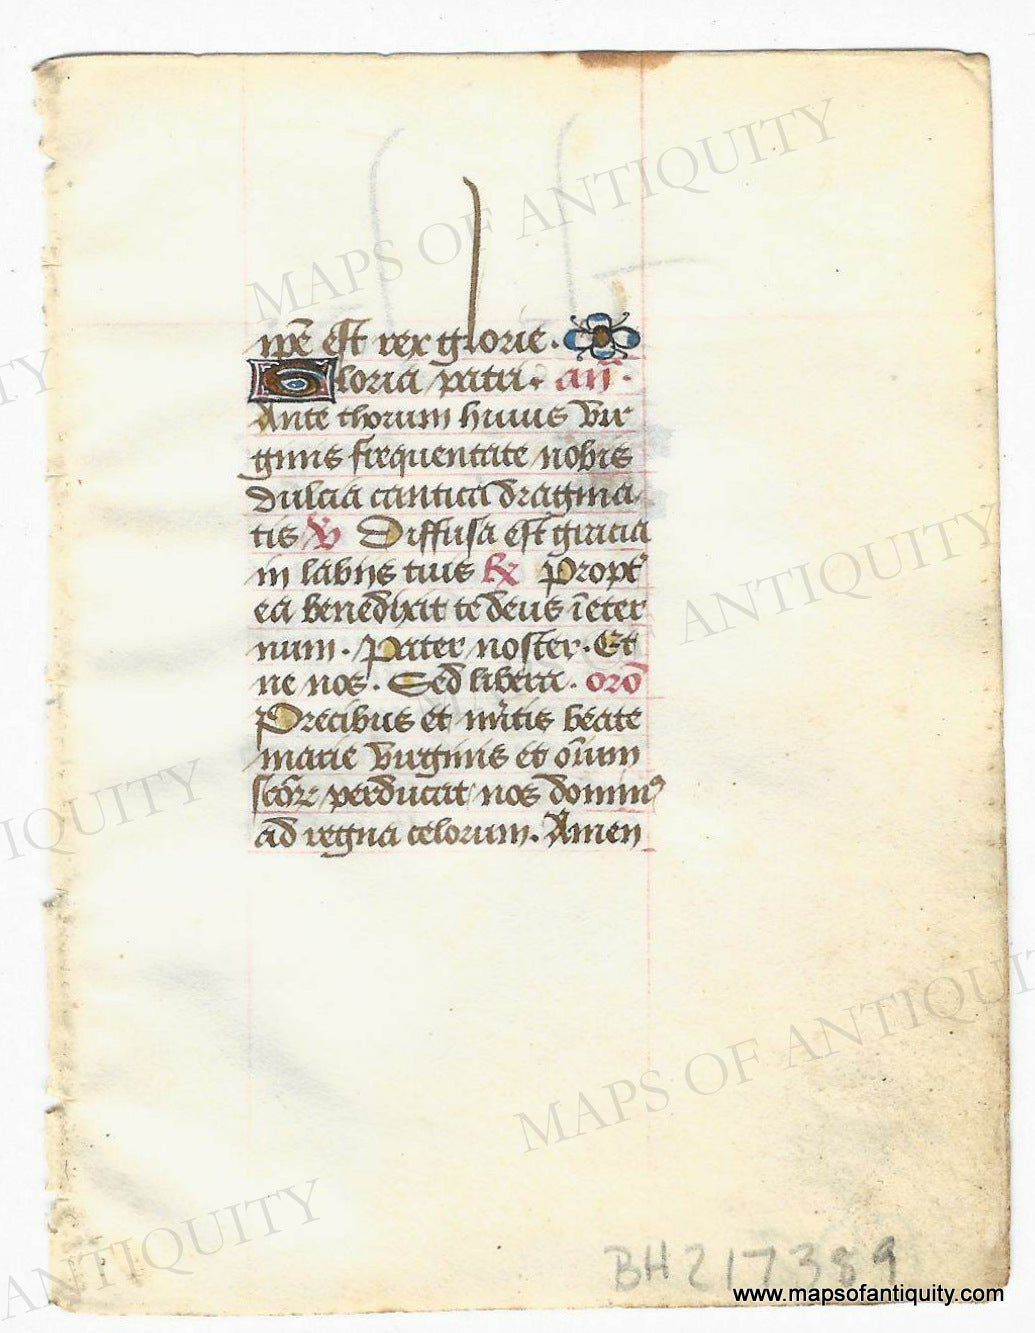 ip̄e est rex glorie.
Gloria patri. an̄.
Ante thorum huius vir
ginis frequentate nobis
dulcia cantica dragma
tis V Diffusa est gracia
in labijs tuis R Propt'
ea benedixit te deus ī eter
num. Pater noster. Et
ne nos. Sed libera. orō
Precibus et mr̄itis beate
marie virginis et om̄ium
sctōrꝝ perducat nos dominꝰ
ad regna celorum. Amen
BH217389
www.mapsofantiquity.com
MAPS OF ANTIQUITY